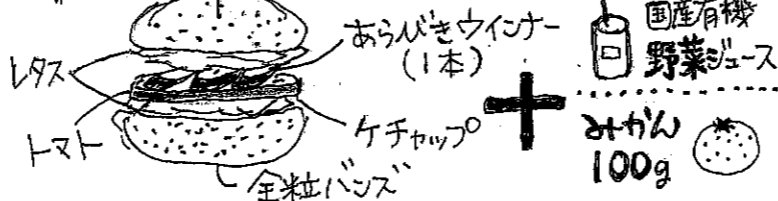 レタス
トマト
あらびきウインナー
(1本)
ケチャップ
全粒バンズ
+
国産有機
野菜ジュース
みかん
100g